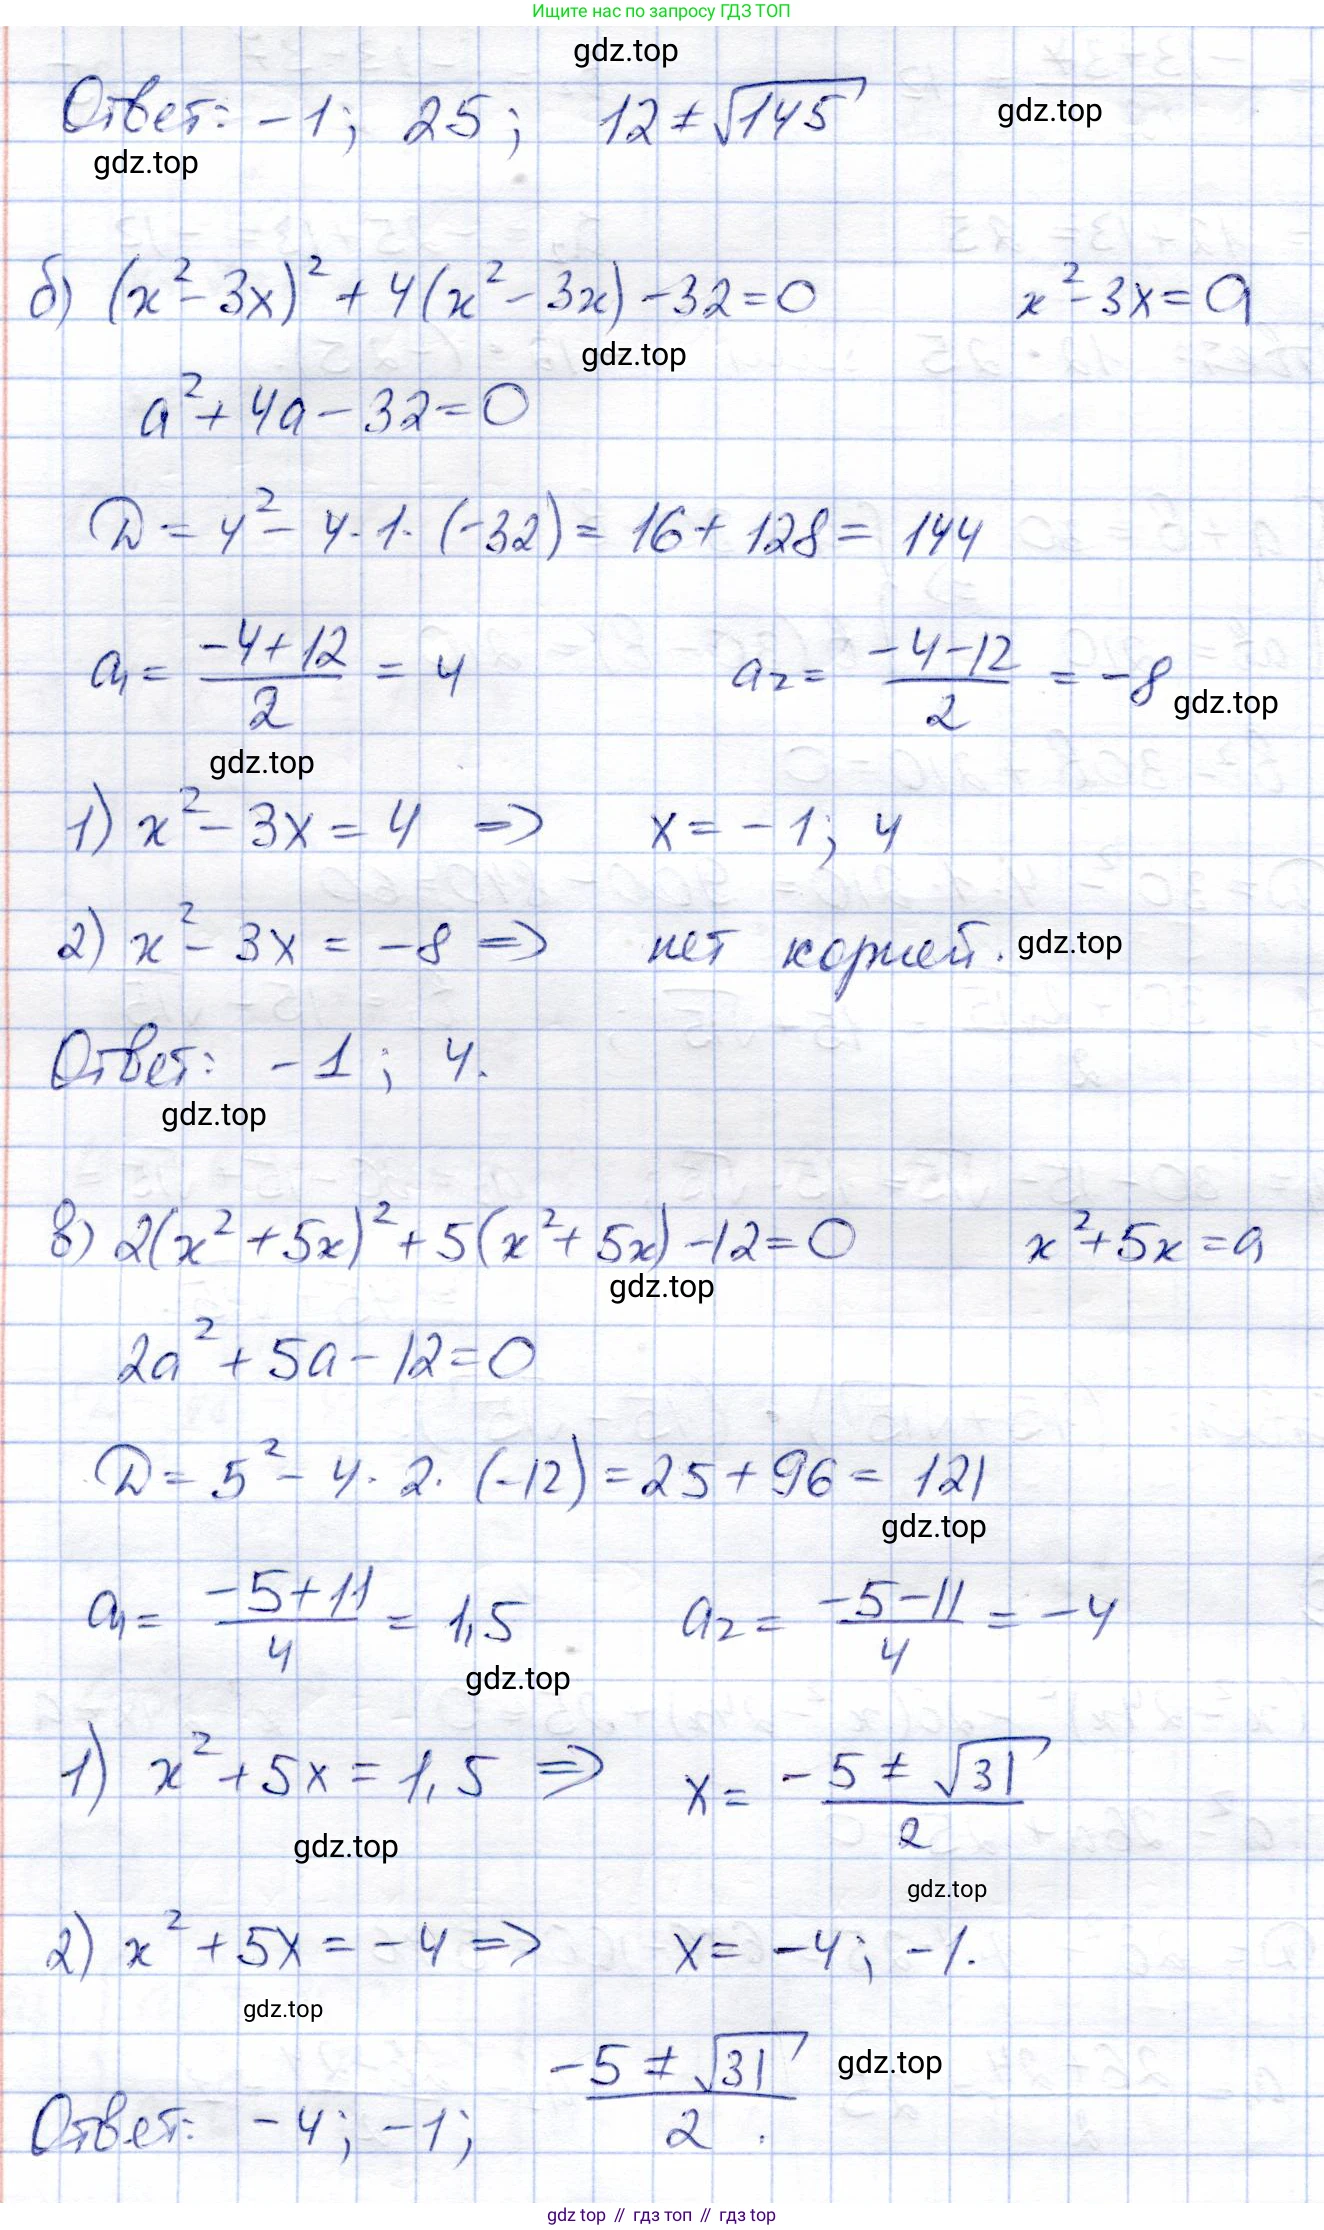 Ищите нас по запросу ГДЗ ТОП
gdz.top
Ответ: -1; 25; 12 ± √145
gdz.top
gdz.top
б) (x² - 3x)² + 4(x² - 3x) - 32 = 0    x² - 3x = a
gdz.top
a² + 4a - 32 = 0
D = 4² - 4 · 1 · (-32) = 16 + 128 = 144
a₁ = (-4+12)/2 = 4    a₂ = (-4-12)/2 = -8
gdz.top
gdz.top
1) x² - 3x = 4 => x = -1; 4
2) x² - 3x = -8 => нет корней.
gdz.top
Ответ: -1; 4.
gdz.top
в) 2(x² + 5x)² + 5(x² + 5x) - 12 = 0    x² + 5x = a
gdz.top
2a² + 5a - 12 = 0
D = 5² - 4 · 2 · (-12) = 25 + 96 = 121
gdz.top
a₁ = (-5+11)/4 = 1,5    a₂ = (-5-11)/4 = -4
gdz.top
1) x² + 5x = 1,5 => x = (-5 ± √31)/2
gdz.top
gdz.top
2) x² + 5x = -4 => x = -4; -1.
gdz.top
gdz.top
Ответ: -4; -1; (-5 ± √31)/2.
gdz top // гдз топ // гдз top